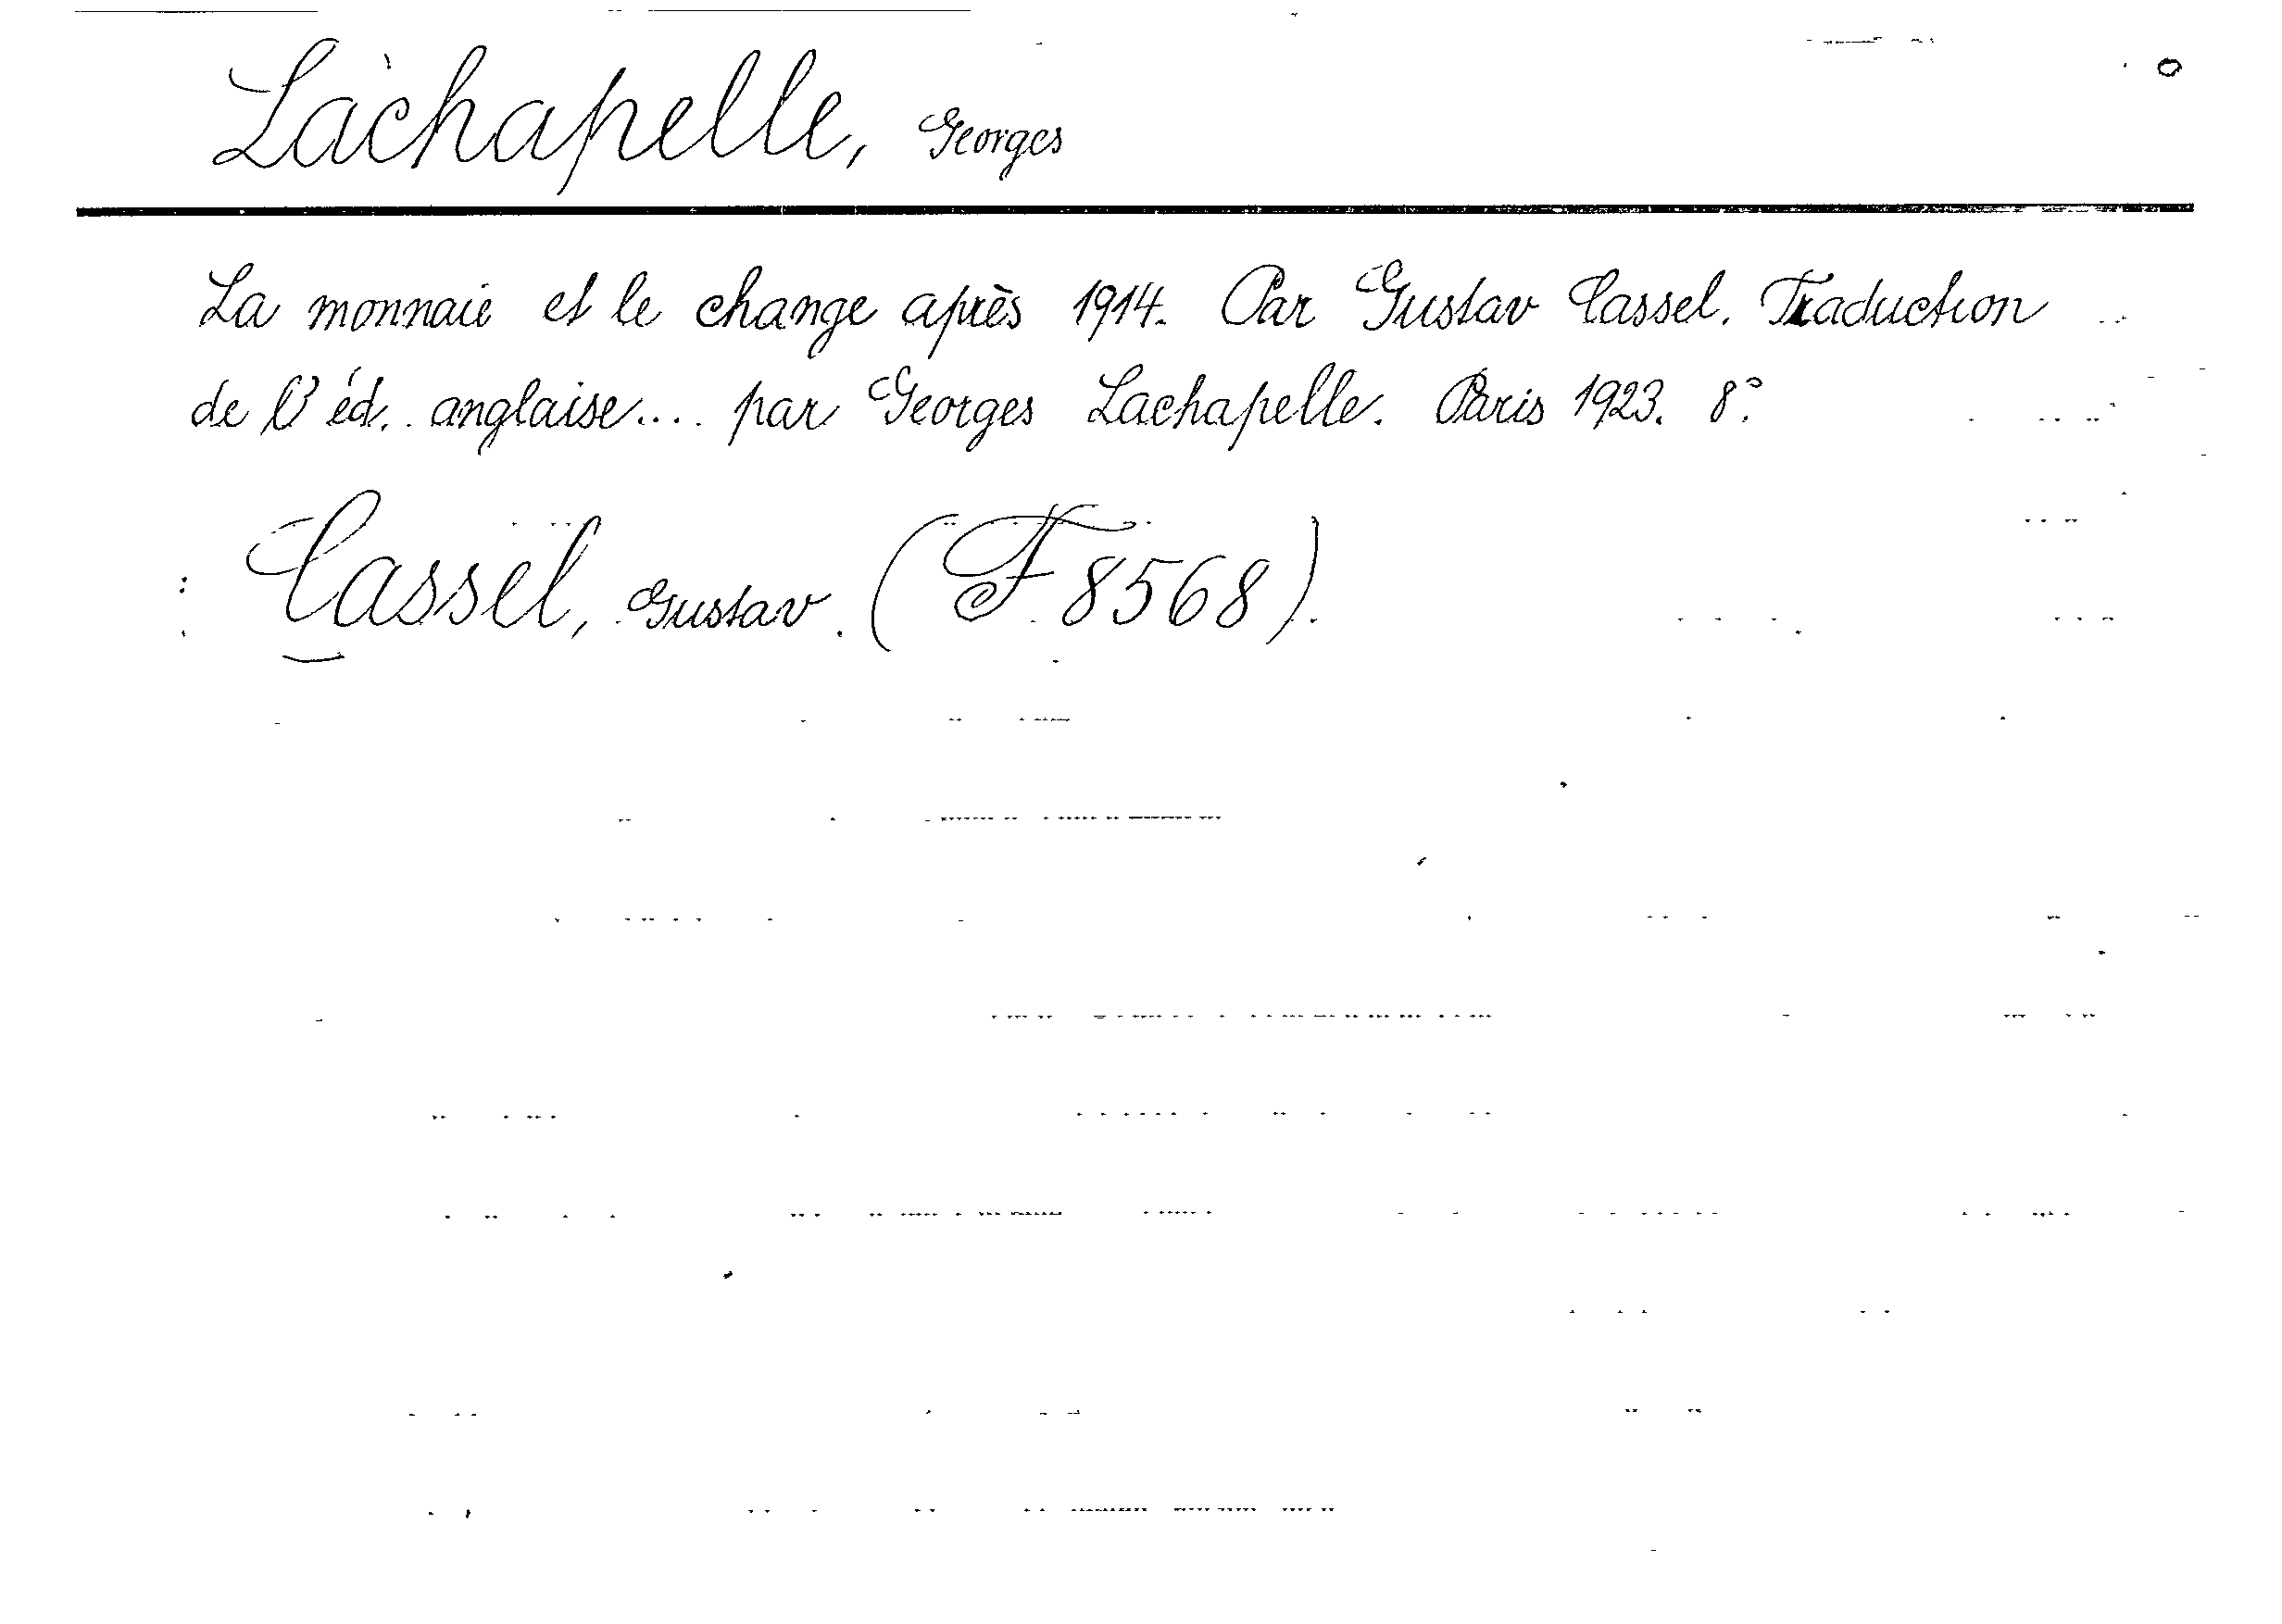 Lachapelle, Georges
La monnaie et le change après 1914. Par Gustav Cassel. Traduction
de l'éd. anglaise.... par Georges Lachapelle. Paris 1923. 8°.
Cassel, Gustav. (F 8568).